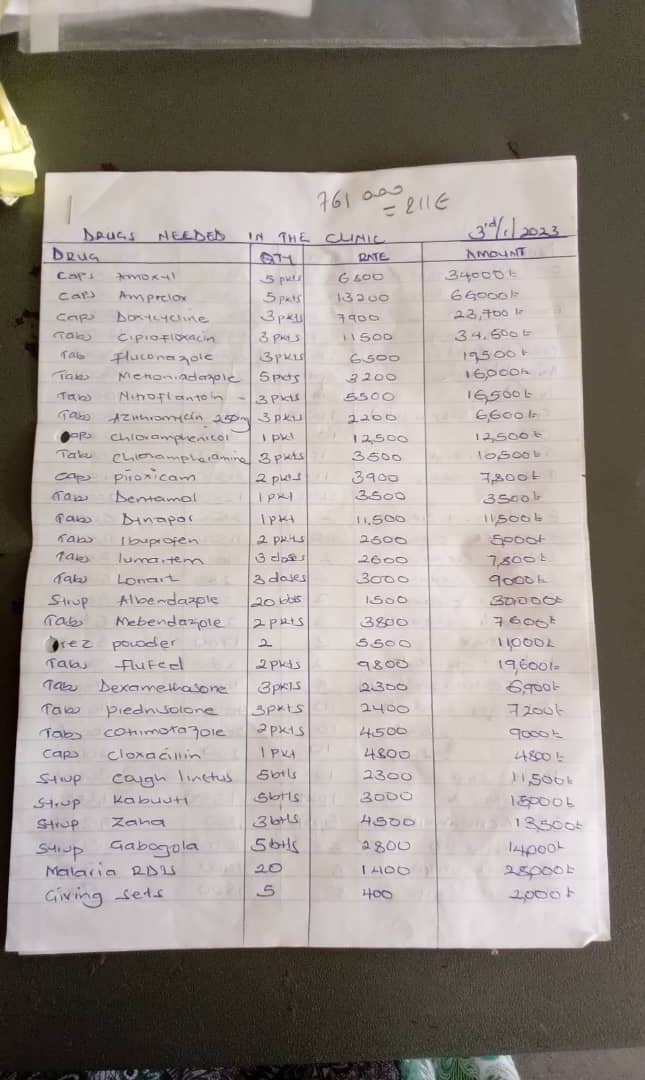 761 000
= 211£
DRUGS NEEDED IN THE CLINIC 3rd/1/2023
DRUG QTY RATE AMOUNT
Caps Amoxyl 5 pkts 6800 34000/=
Caps Ampiclox 5 pkts 13200 66000/=
Caps Doxycycline 3 pkts 7900 23,700/=
Tabs Ciprofloxacin 3 pkts 11500 34,500/=
Tabs Fluconazole 3 pkts 6500 19500/=
Tabs Metroniadazole 5 pkts 3200 16,000/=
Tabs Nitroflantoin - 3 pkts 5500 16,500/=
Tabs Azithromycin 250mg 3 pkts 2200 6,600/=
Caps Chloramphenicol 1 pkt 12,500 12,500/=
Tabs Chloramphelamine 3 pkts 3500 10,500/=
Cap piroxicam 2 pkts 3900 7,800/=
Tabs Dentamol 1 pkt 3500 3500/=
Tabs Dinapar 1 pkt 11,500 11,500/=
Tabs Ibuprofen 2 pkts 2500 5000/=
Tabs lumartem 3 doses 2600 7,800/=
Tabs Lonart 3 doses 3000 9000/=
Syrup Albendazole 20 btls 1500 30,000/=
Tabs Mebendazole 2 pkts 3800 7600/=
powder 2 5,500 11,000/=
Tabs flufed 2 pkts 9,800 19,600/=
Tabs Dexamethasone 3 pkts 2300 6,900/=
Tabs prednisolone 3 pkts 2400 7200/=
Tabs cotrimoxazole 2 pkts 4,500 9000/=
Caps cloxacillin 1 pkt 4800 4800/=
Syrup cough linctus 5 btls 2300 11,500/=
Syrup Kabuuti 5 btls 3000 15000/=
Syrup Zaha 3 btls 4500 13,500/=
Syrup Gabogola 5 btls 2800 14,000/=
Malaria RDTs 20 1400 28,000/=
Giving sets 5 400 2,000/=